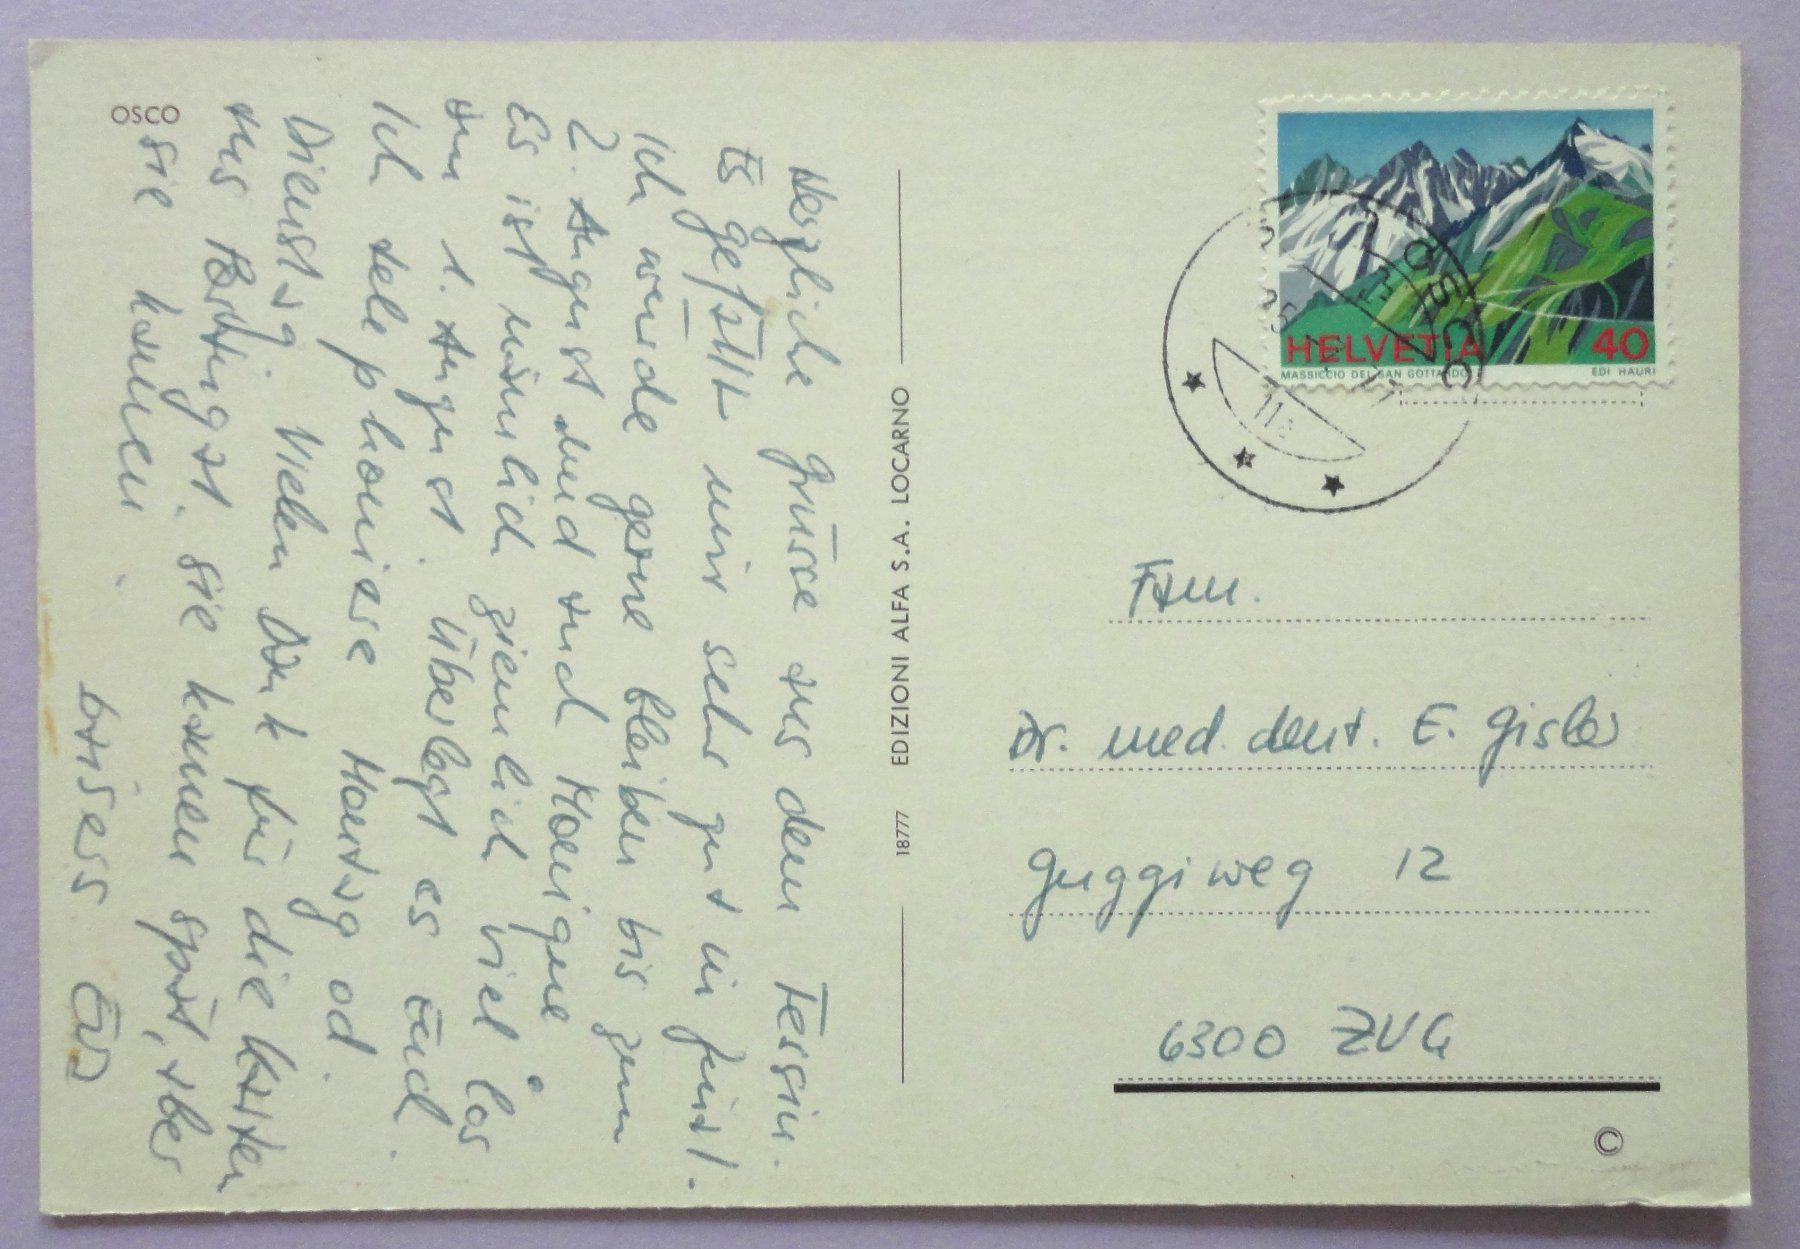 OSCO
Herzliche Grüsse aus dem Tessin.
Es gefällt mir sehr gut in
Ich würde gerne bleiben bis zum
2. August und und Monique
Es ist nämlich ziemlich viel los
am 1. August. Überlegt es Euch.
Ich telephoniere Montag od.
Dienstag. Vielen Dank für die Karten
aus Sie kamen spät, aber
sie kamen.
Eva
18777 EDIZIONI ALFA S.A. LOCARNO
HELVETIA 40
MASSICCIO DEL SAN GOTTARDO EDI HAURI
OSCO
Fam.
Dr. med. dent. E. Gisler
Guggiweg 12
6300 ZUG
©